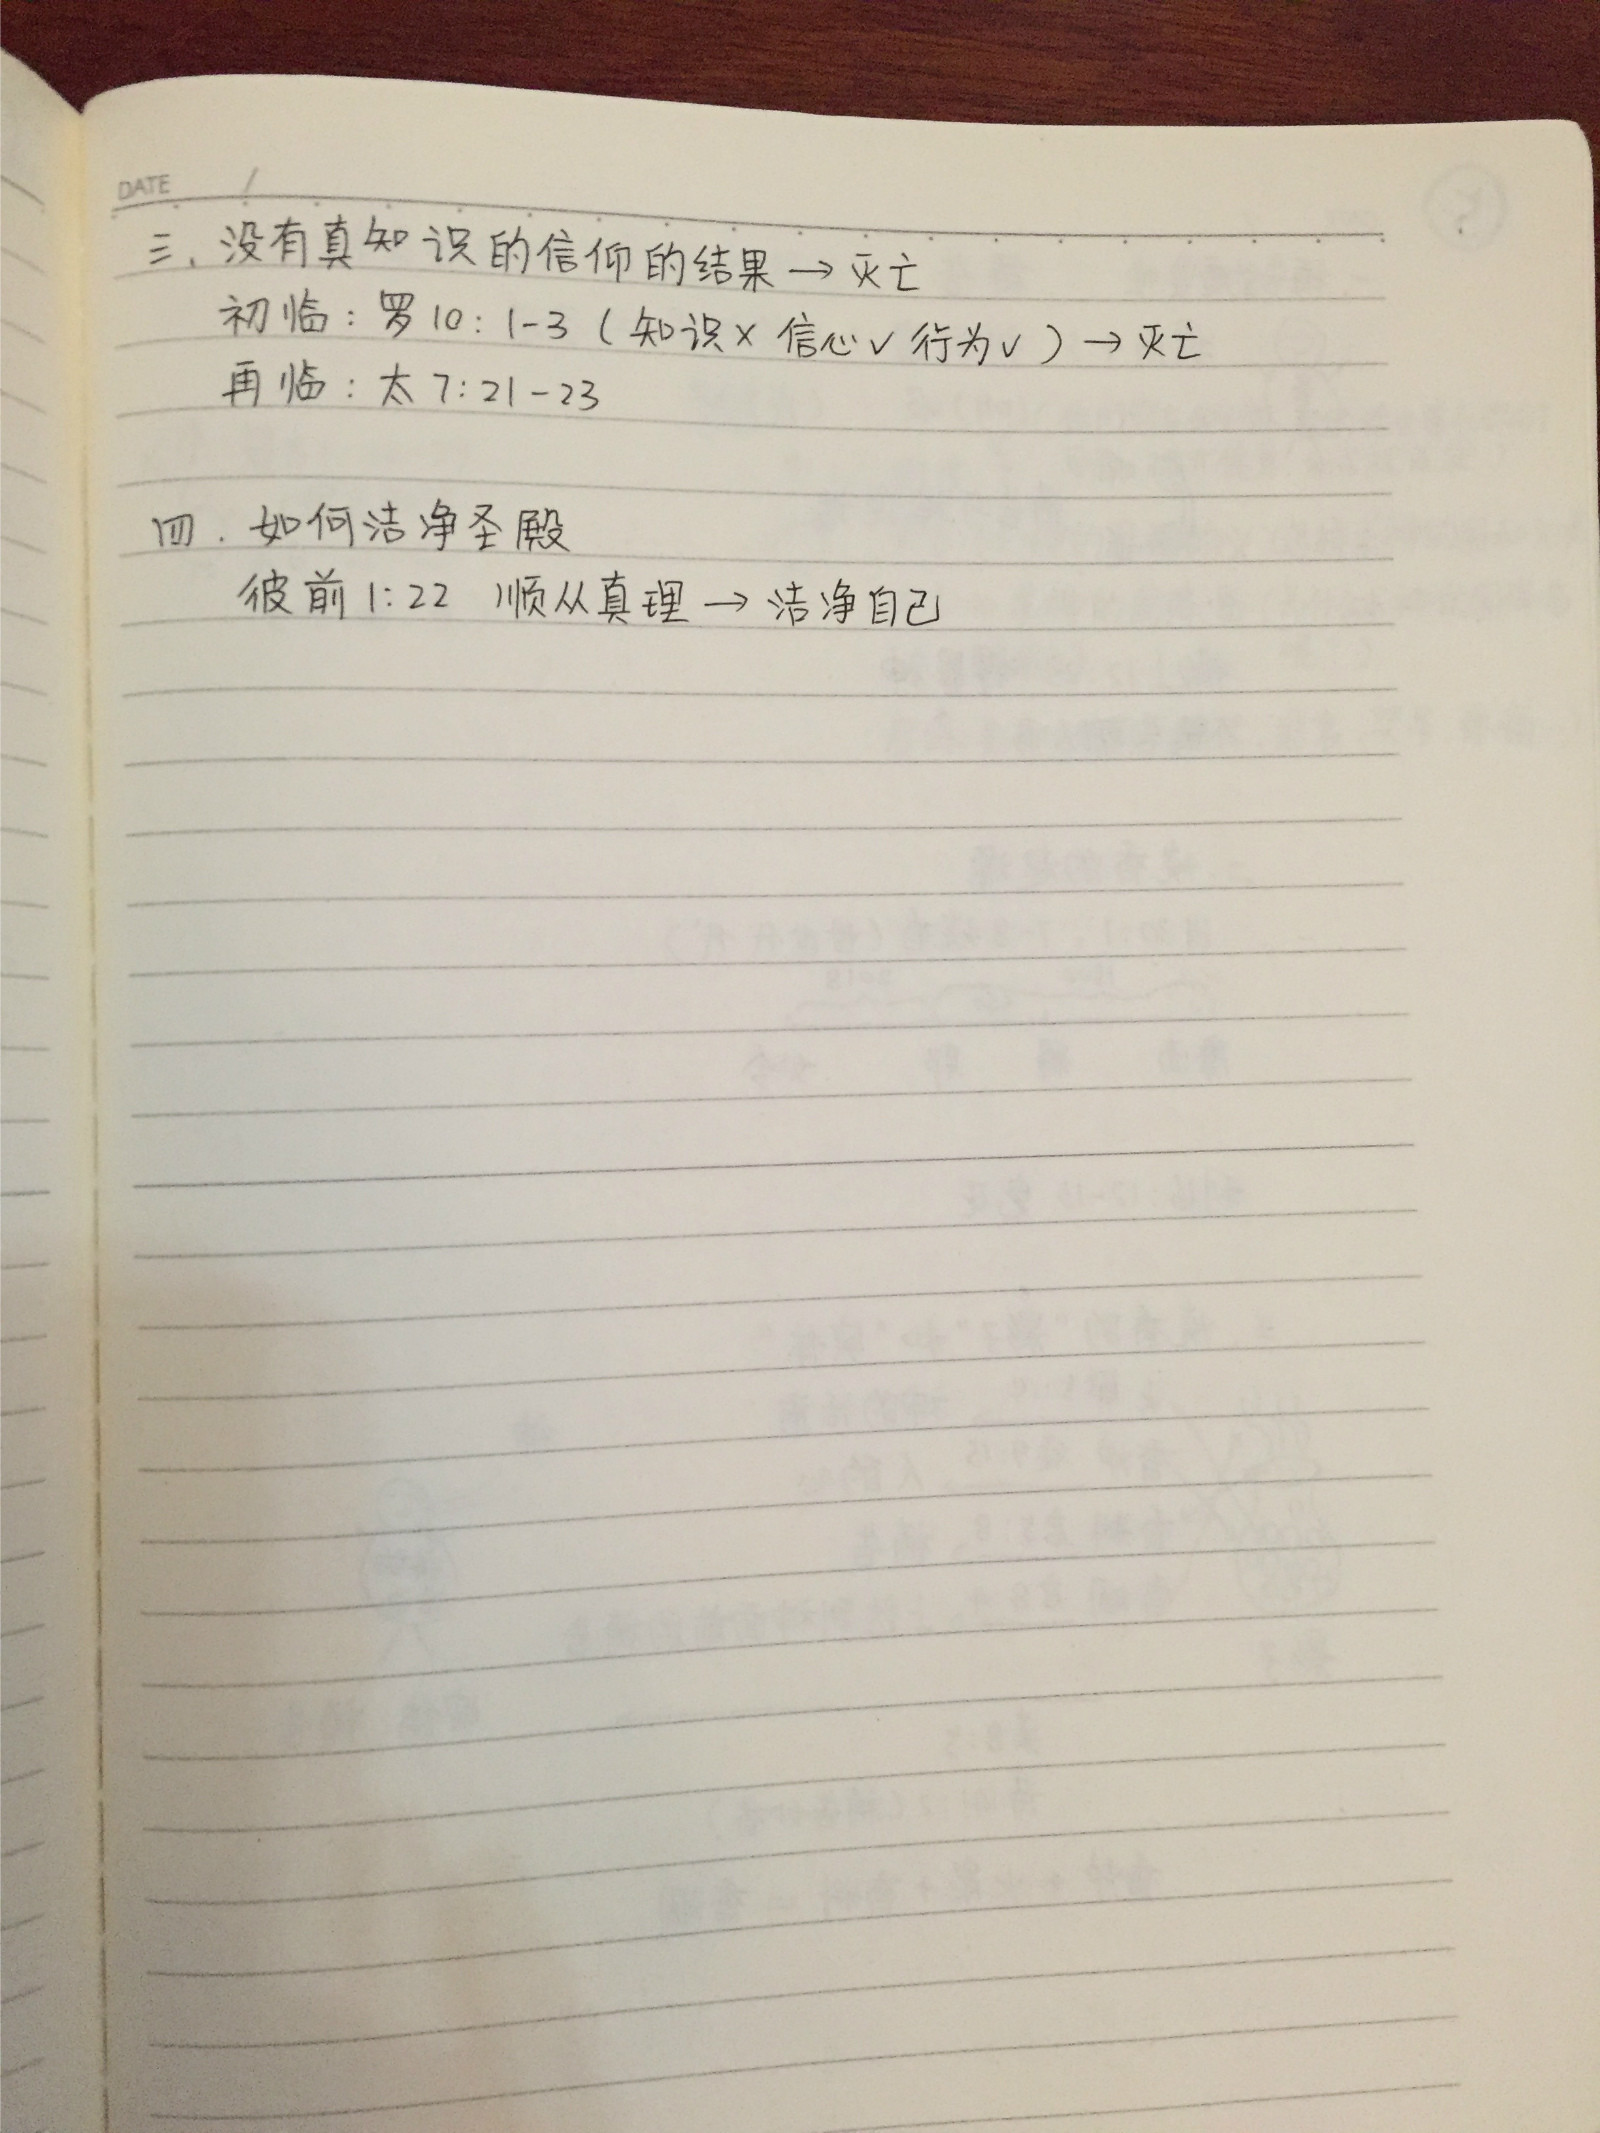 DATE /
三、没有真知识的信仰的结果→灭亡
初临：罗10：1-3（知识×信心✓行为✓）→灭亡
再临：太7：21-23
四．如何洁净圣殿
彼前1：22 顺从真理→洁净自己